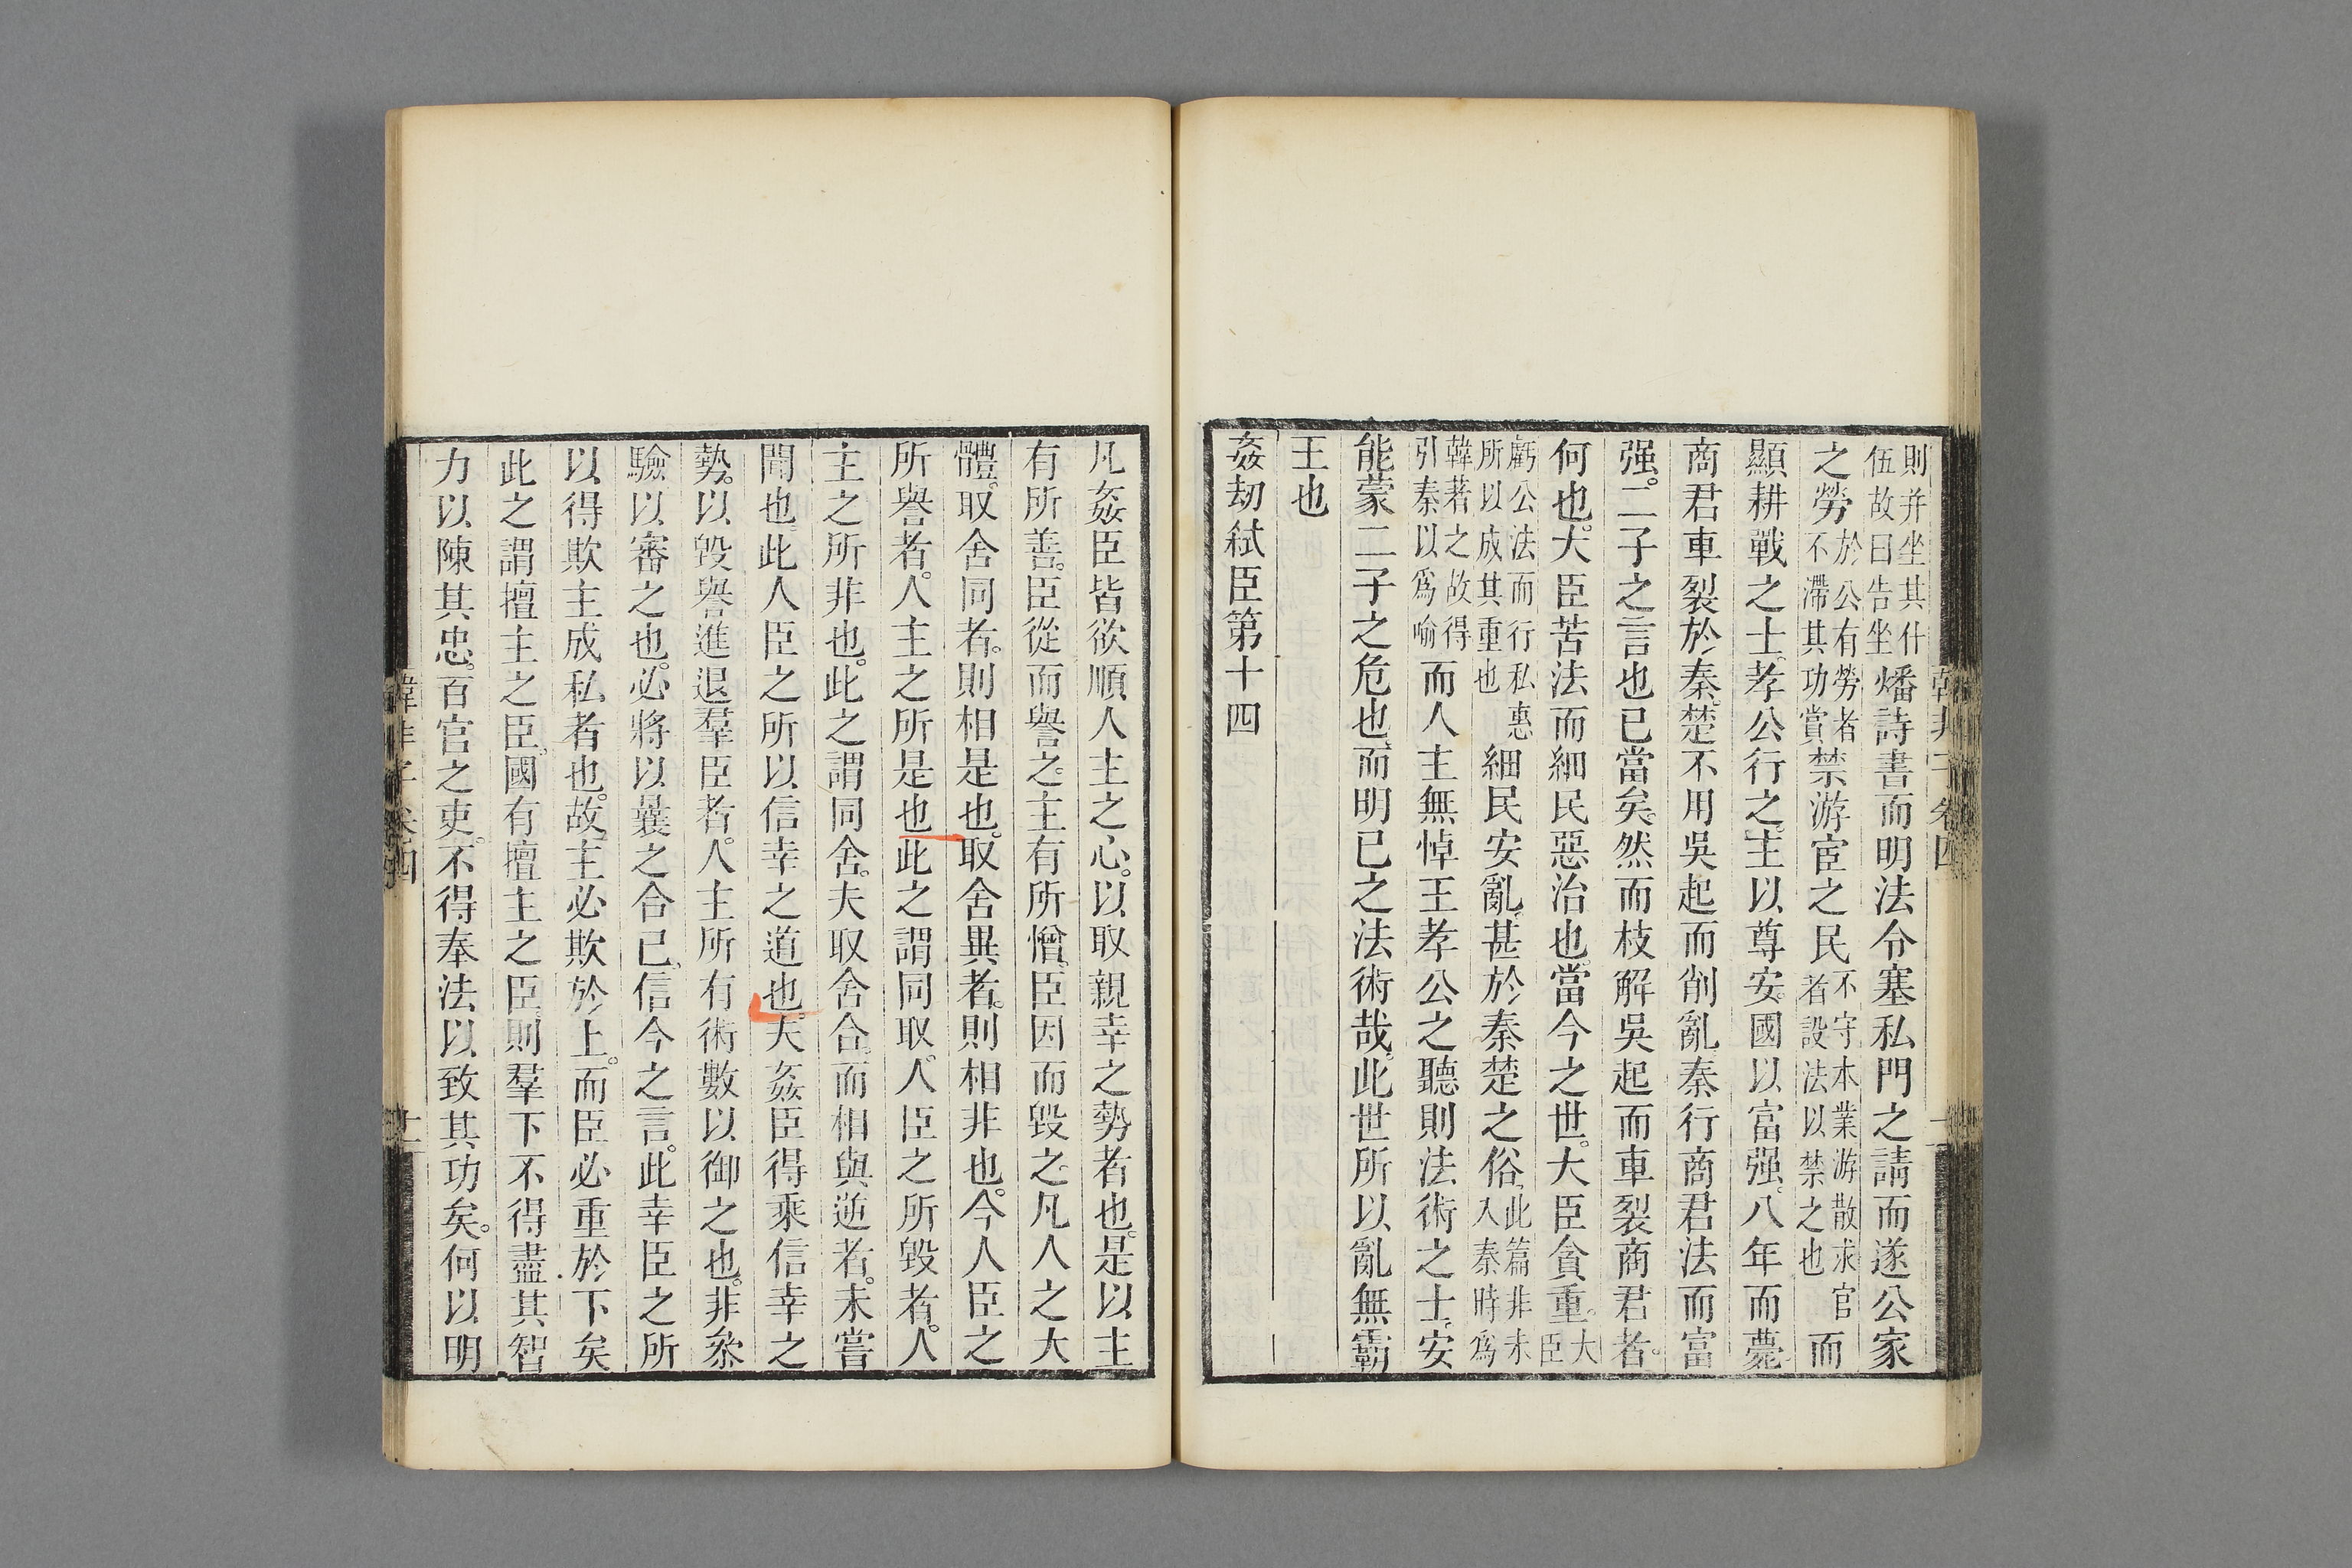 則并坐其什
伍故曰告坐
燔詩書而明法令塞私門之請而遂公家
之勞
於公有勞者
不滯其功賞
禁游宦之民
不守本業游散求官
者設法以禁之也
而
顯耕戰之士孝公行之主以尊安國以富强八年而薨
商君車裂於秦楚不用吳起而削亂秦行商君法而富
强二子之言也已當矣然而枝解吳起而車裂商君者
何也大臣苦法而細民惡治也當今之世大臣貪重
大
臣
虧公法而行私惠
所以成其重也
細民安亂甚於秦楚之俗
此篇非未
入秦時爲
韓著之故得
引秦以爲喻
而人主無悼王孝公之聽則法術之士安
能蒙二子之危也而明已之法術哉此世所以亂無霸
王也
姦劫弒臣第十四
韓非子卷四
凡姦臣皆欲順人主之心以取親幸之勢者也是以主
有所善臣從而譽之主有所憎臣因而毀之凡人之大
體取舍同者則相是也取舍異者則相非也今人臣之
所譽者人主之所是也此之謂同取人臣之所毀者人
主之所非也此之謂同舍夫取舍合而相與逆者未嘗
聞也此人臣之所以信幸之道也夫姦臣得乘信幸之
勢以毀譽進退羣臣者人主所有術數以御之也非參
驗以審之也必將以曩之合己信今之言此幸臣之所
以得欺主成私者也故主必欺於上而臣必重於下矣
此之謂擅主之臣國有擅主之臣則羣下不得盡其智
力以陳其忠百官之吏不得奉法以致其功矣何以明
韓非子卷四
十一